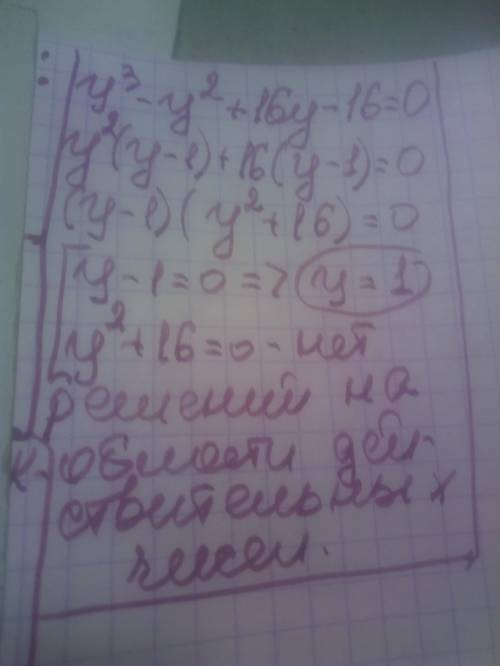 y³ - y² + 16y - 16 = 0
y²(y-1) + 16(y-1) = 0
(y-1)(y² + 16) = 0
y - 1 = 0 => y = 1
y² + 16 = 0 - нет
решений на
области дей-
ствительных
чисел.